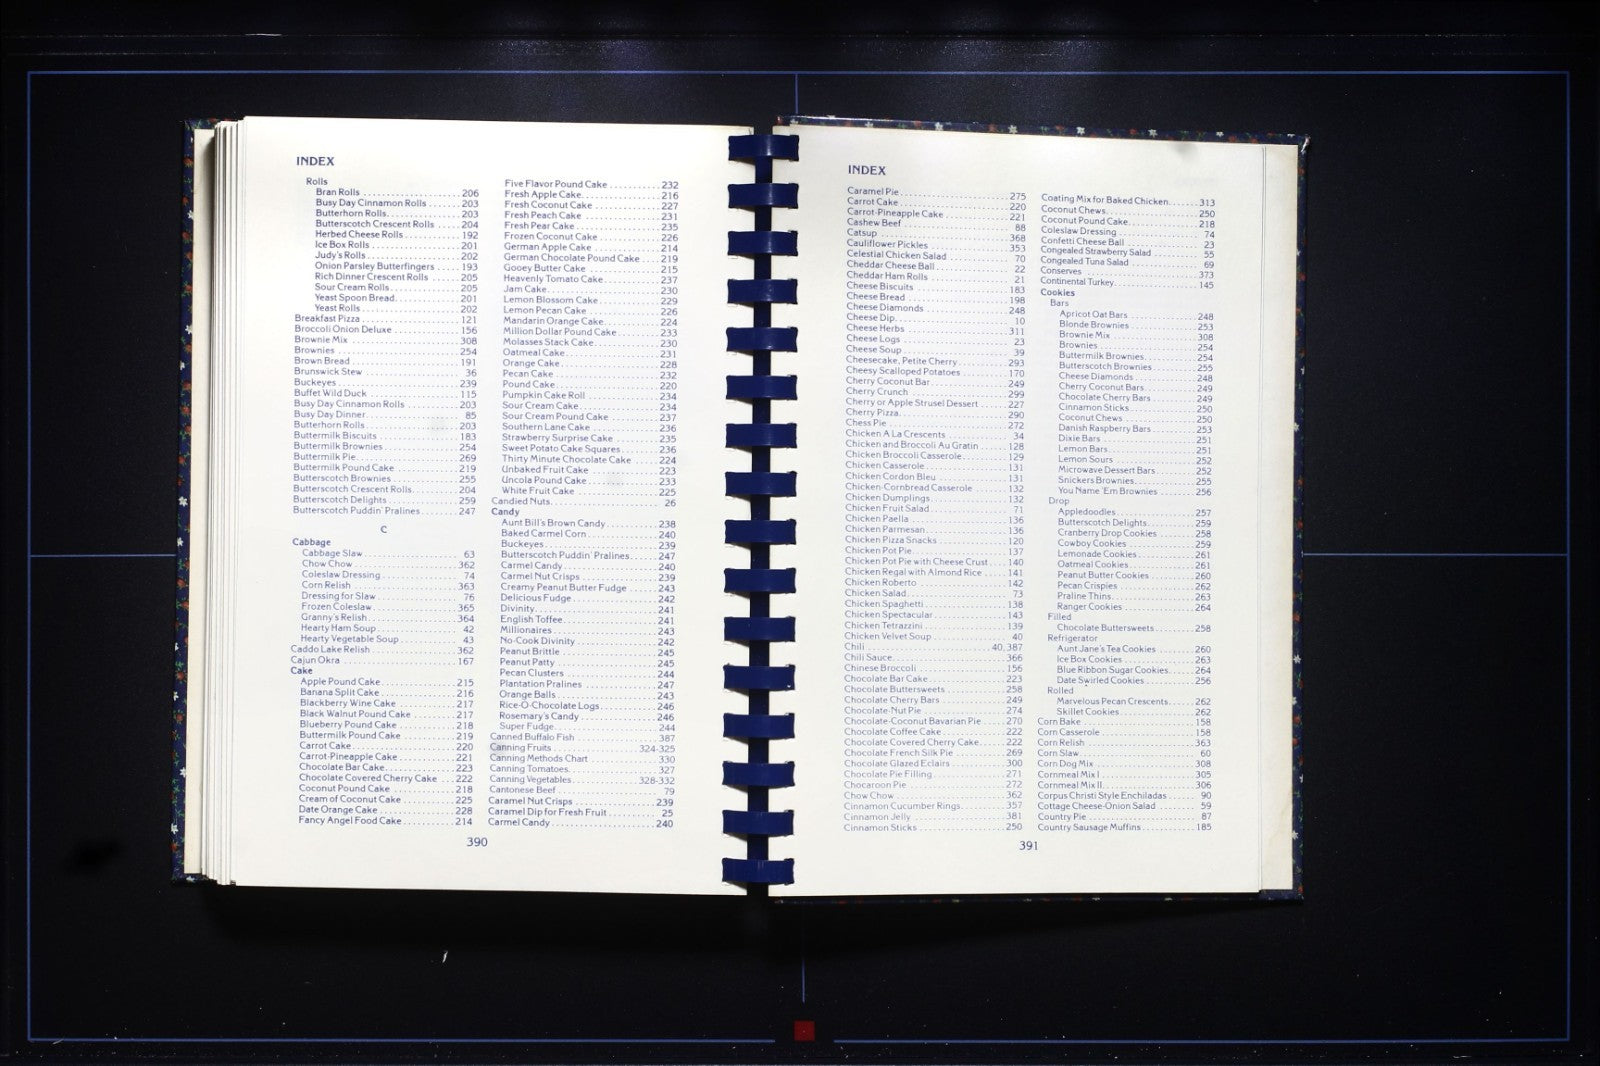 INDEX
Rolls
Bran Rolls 206
Busy Day Cinnamon Rolls 203
Butterhorn Rolls 203
Butterscotch Crescent Rolls 204
Herbed Cheese Rolls 192
Ice Box Rolls 201
Judy's Rolls 202
Onion Parsley Butterfingers 193
Rich Dinner Crescent Rolls 205
Sour Cream Rolls 205
Yeast Spoon Bread 201
Yeast Rolls 202
Breakfast Pizza 121
Broccoli Onion Deluxe 156
Brownie Mix 308
Brownies 254
Brown Bread 191
Brunswick Stew 36
Buckeyes 239
Buffet Wild Duck 115
Busy Day Cinnamon Rolls 203
Busy Day Dinner 85
Butterhorn Rolls 203
Buttermilk Biscuits 183
Buttermilk Brownies 254
Buttermilk Pie 269
Buttermilk Pound Cake 219
Butterscotch Brownies 255
Butterscotch Crescent Rolls 204
Butterscotch Delights 259
Butterscotch Puddin' Pralines 247
C
Cabbage
Cabbage Slaw 63
Chow Chow 362
Coleslaw Dressing 74
Corn Relish 363
Dressing for Slaw 76
Frozen Coleslaw 365
Granny's Relish 364
Hearty Ham Soup 42
Hearty Vegetable Soup 43
Caddo Lake Relish 362
Cajun Okra 167
Cake
Apple Pound Cake 215
Banana Split Cake 216
Blackberry Wine Cake 217
Black Walnut Pound Cake 217
Blueberry Pound Cake 218
Buttermilk Pound Cake 219
Carrot Cake 220
Carrot-Pineapple Cake 221
Chocolate Bar Cake 223
Chocolate Covered Cherry Cake 222
Coconut Pound Cake 218
Cream of Coconut Cake 225
Date Orange Cake 228
Fancy Angel Food Cake 214
Five Flavor Pound Cake 232
Fresh Apple Cake 216
Fresh Coconut Cake 227
Fresh Peach Cake 231
Fresh Pear Cake 235
Frozen Coconut Cake 226
German Apple Cake 214
German Chocolate Pound Cake 219
Gooey Butter Cake 215
Heavenly Tomato Cake 237
Jam Cake 230
Lemon Blossom Cake 229
Lemon Pecan Cake 226
Mandarin Orange Cake 224
Million Dollar Pound Cake 233
Molasses Stack Cake 230
Oatmeal Cake 231
Orange Cake 228
Pecan Cake 232
Pound Cake 220
Pumpkin Cake Roll 234
Sour Cream Cake 234
Sour Cream Pound Cake 237
Southern Lane Cake 236
Strawberry Surprise Cake 235
Sweet Potato Cake Squares 236
Thirty Minute Chocolate Cake 224
Unbaked Fruit Cake 223
Uncola Pound Cake 233
White Fruit Cake 225
Candied Nuts 26
Candy
Aunt Bill's Brown Candy 238
Baked Carmel Corn 240
Buckeyes 239
Butterscotch Puddin' Pralines 247
Carmel Candy 240
Carmel Nut Crisps 239
Creamy Peanut Butter Fudge 243
Delicious Fudge 242
Divinity 241
English Toffee 241
Millionaires 243
No-Cook Divinity 242
Peanut Brittle 245
Peanut Patty 245
Pecan Clusters 244
Plantation Pralines 247
Orange Balls 243
Rice-O-Chocolate Logs 246
Rosemary's Candy 246
Super Fudge 244
Canned Buffalo Fish 387
Canning Fruits 324-325
Canning Methods Chart 330
Canning Tomatoes 327
Canning Vegetables 328-332
Cantonese Beef 79
Caramel Nut Crisps 239
Caramel Dip for Fresh Fruit 25
Carmel Candy 240
390
INDEX
Caramel Pie 275
Carrot Cake 220
Carrot-Pineapple Cake 221
Cashew Beef 88
Catsup 368
Cauliflower Pickles 353
Celestial Chicken Salad 70
Cheddar Cheese Ball 22
Cheddar Ham Rolls 21
Cheese Biscuits 183
Cheese Bread 198
Cheese Diamonds 248
Cheese Dip 10
Cheese Herbs 311
Cheese Logs 23
Cheese Soup 39
Cheesecake, Petite Cherry 293
Cheesy Scalloped Potatoes 170
Cherry Coconut Bar 249
Cherry Crunch 299
Cherry or Apple Strusel Dessert 227
Cherry Pizza 290
Chess Pie 272
Chicken A La Crescents 34
Chicken and Broccoli Au Gratin 128
Chicken Broccoli Casserole 129
Chicken Casserole 131
Chicken Cordon Bleu 131
Chicken-Cornbread Casserole 132
Chicken Dumplings 132
Chicken Fruit Salad 71
Chicken Paella 136
Chicken Parmesan 136
Chicken Pizza Snacks 120
Chicken Pot Pie 137
Chicken Pot Pie with Cheese Crust 140
Chicken Regal with Almond Rice 141
Chicken Roberto 142
Chicken Salad 73
Chicken Spaghetti 138
Chicken Spectacular 143
Chicken Tetrazzini 139
Chicken Velvet Soup 40
Chili 40, 387
Chili Sauce 366
Chinese Broccoli 156
Chocolate Bar Cake 223
Chocolate Buttersweets 258
Chocolate Cherry Bars 249
Chocolate-Nut Pie 274
Chocolate-Coconut Bavarian Pie 270
Chocolate Coffee Cake 222
Chocolate Covered Cherry Cake 222
Chocolate French Silk Pie 269
Chocolate Glazed Eclairs 300
Chocolate Pie Filling 271
Chocaroon Pie 272
Chow Chow 362
Cinnamon Cucumber Rings 357
Cinnamon Jelly 381
Cinnamon Sticks 250
Coating Mix for Baked Chicken 313
Coconut Chews 250
Coconut Pound Cake 218
Coleslaw Dressing 74
Confetti Cheese Ball 23
Congealed Strawberry Salad 55
Congealed Tuna Salad 69
Conserves 373
Continental Turkey 145
Cookies
Bars
Apricot Oat Bars 248
Blonde Brownies 253
Brownie Mix 308
Brownies 254
Buttermilk Brownies 254
Butterscotch Brownies 255
Cheese Diamonds 248
Cherry Coconut Bars 249
Chocolate Cherry Bars 249
Cinnamon Sticks 250
Coconut Chews 250
Danish Raspberry Bars 253
Dixie Bars 251
Lemon Bars 251
Lemon Sours 252
Microwave Dessert Bars 252
Snickers Brownies 255
You Name 'Em Brownies 256
Drop
Appledoodles 257
Butterscotch Delights 259
Cranberry Drop Cookies 258
Cowboy Cookies 259
Lemonade Cookies 261
Oatmeal Cookies 261
Peanut Butter Cookies 260
Pecan Crispies 262
Praline Thins 263
Ranger Cookies 264
Filled
Chocolate Buttersweets 258
Refrigerator
Aunt Jane's Tea Cookies 260
Ice Box Cookies 263
Blue Ribbon Sugar Cookies 264
Date Swirled Cookies 256
Rolled
Marvelous Pecan Crescents 262
Skillet Cookies 262
Corn Bake 158
Corn Casserole 158
Corn Relish 363
Corn Slaw 60
Corn Dog Mix 308
Cornmeal Mix I 305
Cornmeal Mix II 306
Corpus Christi Style Enchiladas 90
Cottage Cheese-Onion Salad 59
Country Pie 87
Country Sausage Muffins 185
391